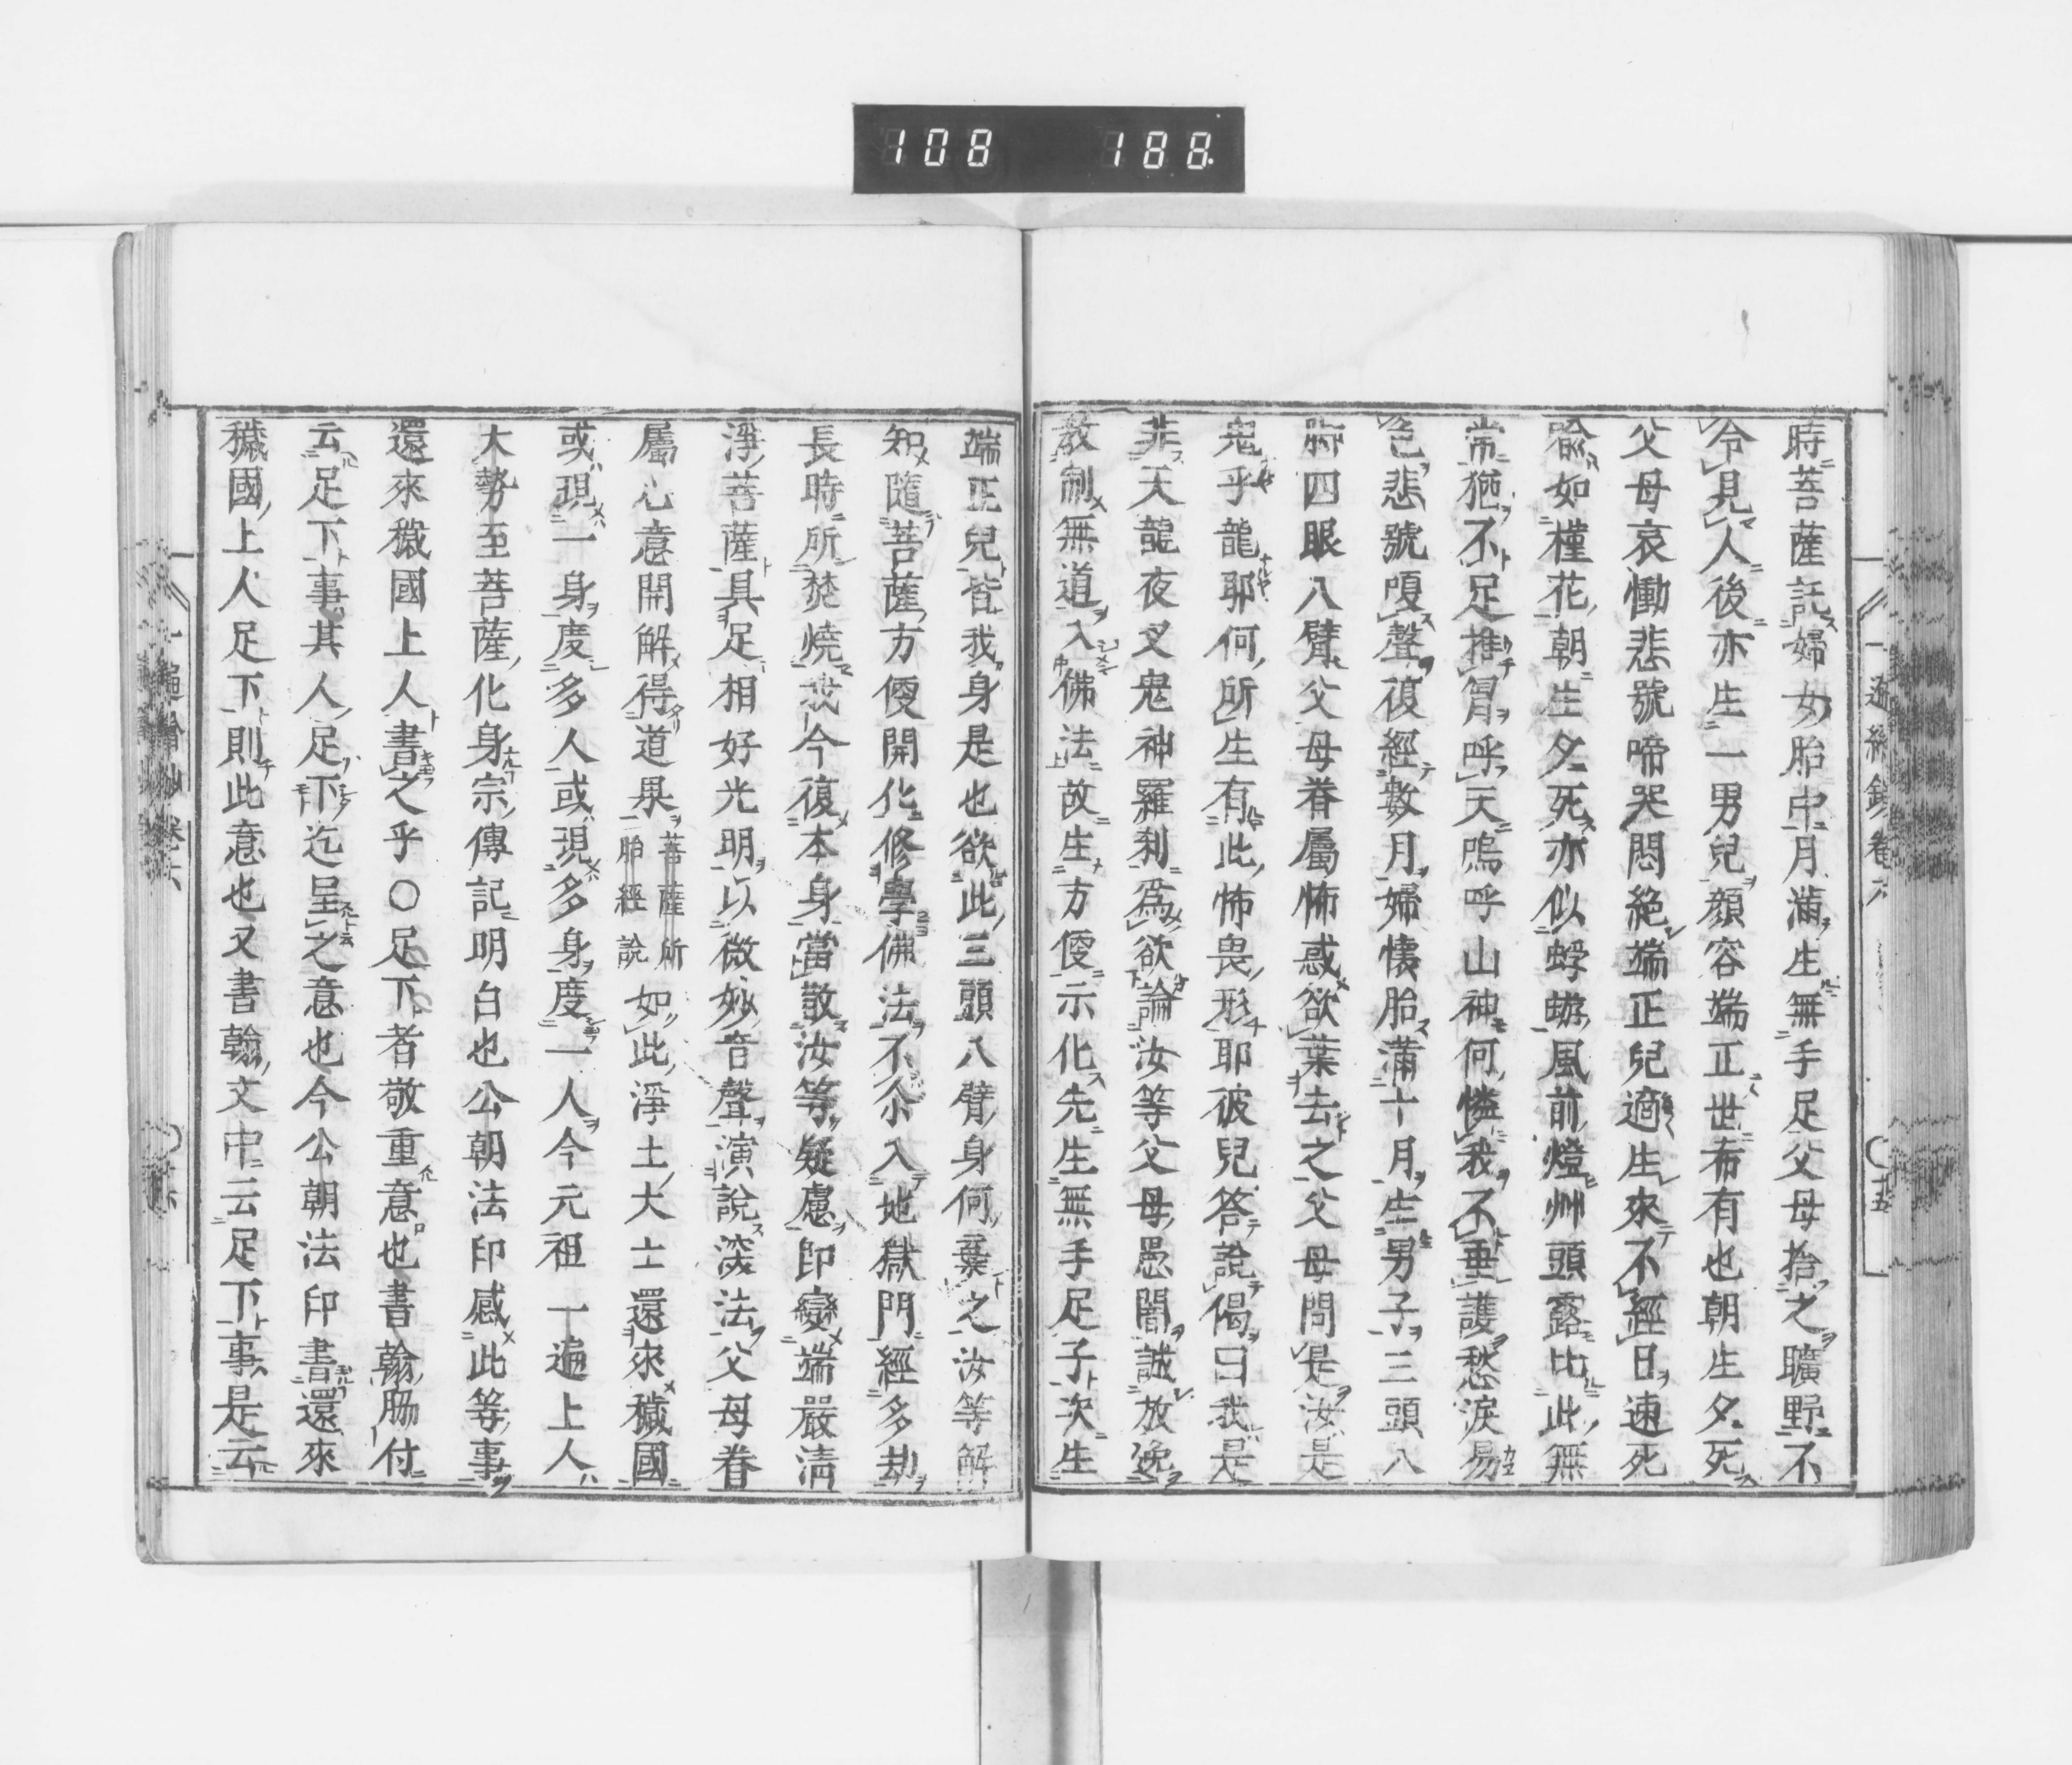 108 188
時菩薩託婦女胎中月滿生無手足父母捨之曠野不
令見人後亦生一男兒顏容端正世希有也朝生夕死
父母哀慟悲號啼哭悶絶端正兒適生來不經日速死
喩如槿花朝生夕死亦似蜉蝣風前燈艸頭露比此無
常猶不足推胷呼天嗚呼山神何憐我不垂護愁淚易
色悲號嗄聲復經數月婦懐胎滿十月生男子三頭八
脚四眼八臂父母眷屬怖惑欲葉去之父母問是汝是
鬼乎龍耶何所生有此怖畏形耶彼兒答說偈曰我是
非天龍夜叉鬼神羅刹爲欲論汝等父母愚闇誠放逸
教制無道入佛法故生方便示化先生無手足子次生
端正兒皆我身是也欲此三頭八臂身何棄之汝等解
知隨菩薩方便開化修學佛法不尒入地獄門經多劫
長時所焚燒我今復本身當散汝等疑慮即變端嚴淸
淨菩薩具足相好光明以微妙音聲演說深法父母眷
屬心意開解得道果菩薩所胎經說如此淨土大士還來穢國
或現一身度多人或現多身度一人今元祖一遍上人
大勢至菩薩化身宗傳記明白也公朝法印感此等事
還來穢國上人書之乎○足下者敬重意也書翰脇付
云足下事其人足下迄呈之意也今公朝法印書還來
穢國上人足下則此意也又書翰文中云足下事是云